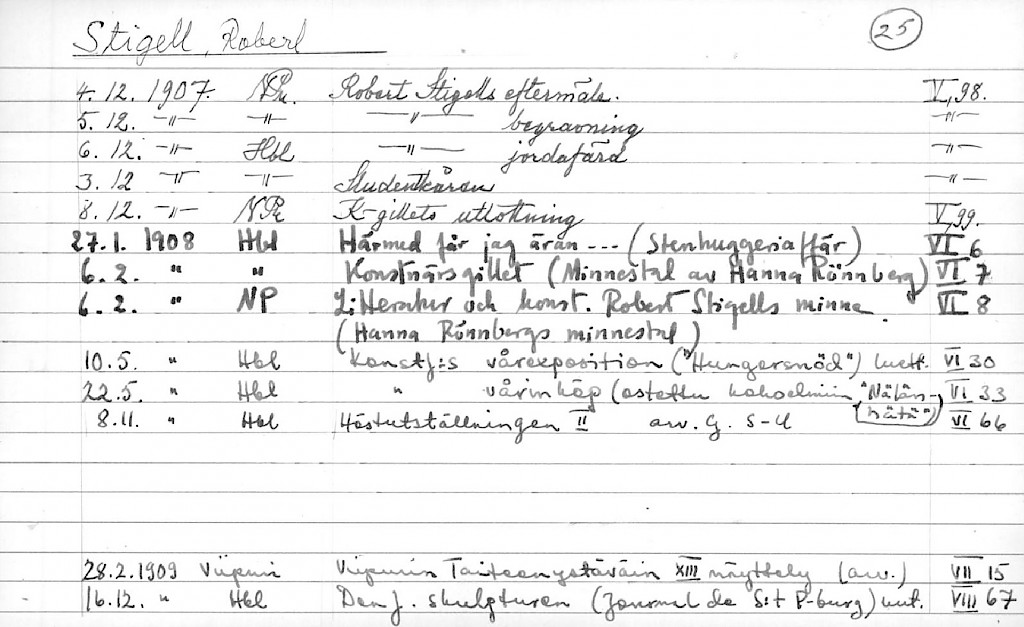 Stigell, Robert 25
4.12. 1907. N.Pr. Robert Stigells eftermäle. V, 98.
5.12. -"- -"- -"- begravning -"-
6.12. -"- Hbl -"- jordafärd -"-
3.12 -"- -"- Studentkåren -"-
8.12. -"- N.Pr. K-gillets utlottning V, 99.
27.1. 1908 Hbl Härmed får jag äran --- (Stenhuggeriaffär) VI 6
6.2. " " Konstnärsgillet (Minnestal av Hanna Rönnberg) VI 7
6.2. " NP Litteratur och konst. Robert Stigells minne. VI 8
(Hanna Rönnbergs minnestal)
10.5. " Hbl Konstf:s vårexposition ("Hungersnöd") VI 30
22.5. " Hbl " vårinköp (ostettu kokoelmiin "Nälän- VI 33
hätä")
8.11. " Hbl Höstutställningen II arv. G. S-U VI 66
28.2.1909 Viipuri Viipurin Taiteenystäväin XIII näyttely (arv.) VII 15
16.12. " Hbl Den f. skulpturen (Journal de S:t P-burg) uut. VIII 67